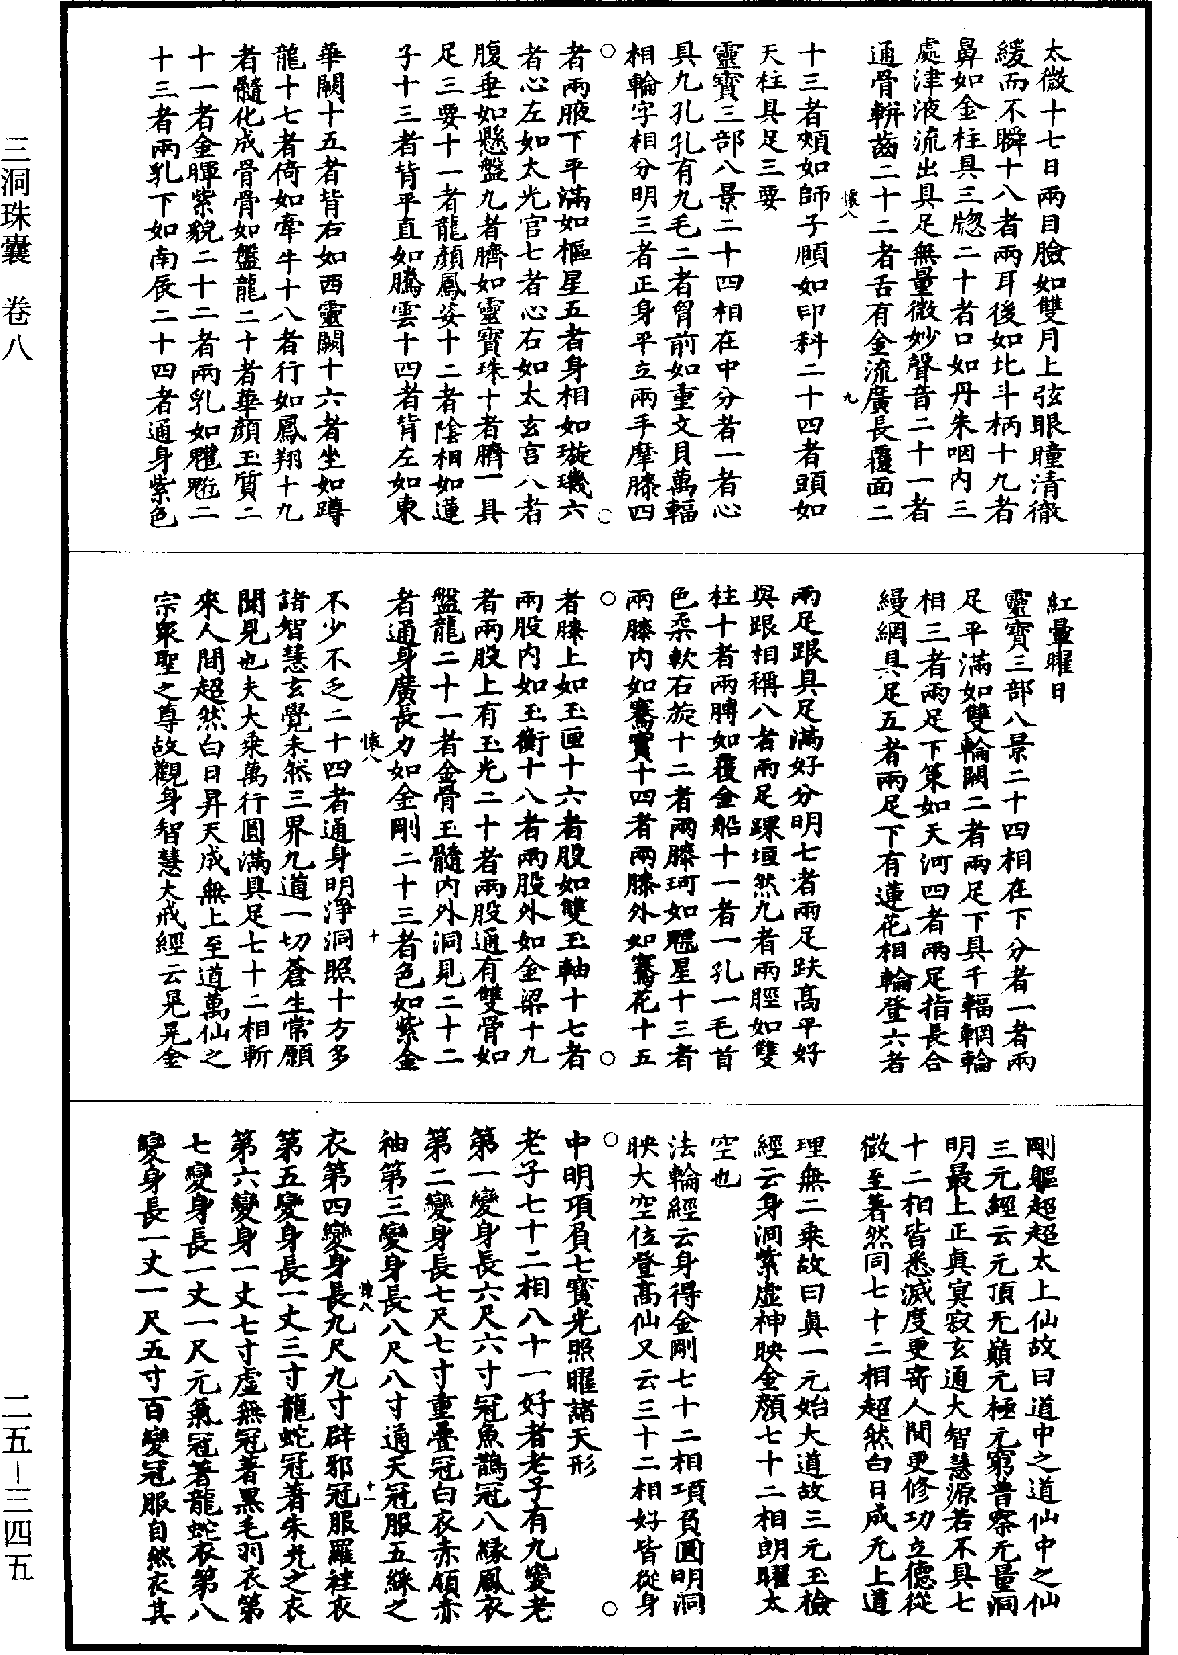 三洞珠囊 卷八
二五—三四五
太微十七日兩目臉如雙月上弦眼瞳清徹
緩而不瞬十八者兩耳後如北斗柄十九者
鼻如金柱具三牕二十者口如丹朱咽内三
處津液流出具足無量微妙聲音二十一者
通骨軿齒二十二者舌有金流廣長覆面二
懷八 九
十三者頰如師子頤如印科二十四者頭如
天柱具足三要
靈寶三部八景二十四相在中分者一者心
具九孔孔有九毛二者胷前如重文貝萬輻
相輪字相分明三者正身平立兩手摩膝四
者兩腋下平滿如樞星五者身相如璇璣六
者心左如太光官七者心右如太玄宫八者
腹垂如懸盤九者臍如靈寶珠十者臍一具
足三要十一者龍顔鳳姿十二者陰相如蓮
子十三者背平直如騰雲十四者背左如東
華闕十五者背右如西靈闕十六者坐如蹲
龍十七者倚如牽牛十八者行如鳳翔十九
者髓化成骨骨如盤龍二十者華顔玉質二
十一者金暉紫貌二十二者兩乳如魓䰢二
十三者兩乳下如南辰二十四者通身紫色
紅暈曜日
靈寶三部八景二十四相在下分者一者兩
足平滿如雙輪闕二者兩足下具千輻輞輪
相三者兩足下策如天河四者兩足指長合
縵網具足五者兩足下有蓮花相輪登六者
兩足跟具足滿好分明七者兩足趺高平好
與跟相稱八者兩足踝垣然九者兩脛如雙
柱十者兩膊如覆金船十一者一孔一毛首
色柔軟右旋十二者兩膝珂如魒星十三者
兩膝内如騫實十四者兩膝外如騫花十五
者膝上如玉匣十六者股如雙玉軸十七者
兩股内如玉衡十八者兩股外如金梁十九
者兩股上有玉光二十者兩股通有雙骨如
盤龍二十一者金骨玉髓内外洞見二十二
者通身廣長力如金剛二十三者色如紫金
懷八 十
不少不乏二十四者通身明淨洞照十方多
諸智慧玄覺未然三界九道一切蒼生常願
聞見也夫大乘萬行圓滿具足七十二相斬
來人間超然白日昇天成無上至道萬仙之
宗衆聖之尊故觀身智慧大戒經云晃晃金
剛軀超超太上仙故曰道中之道仙中之仙
三元經云元頂无巔元極元窮普察无量洞
明最上正真冥寂玄通大智慧源若不具七
十二相皆悉滅度更寄人間更修功立德從
微至著然同七十二相超然白日成无上道
理無二乘故曰真一元始大道故三元玉檢
經云身洞紫虛神映金顔七十二相朗曜太
空也
法輪經云身得金剛七十二相項負圓明洞
映大空位登高仙又云三十二相好皆從身
中明項負七寶光照曜諸天形
老子七十二相八十一好者老子有九變老
第一變身長六尺六寸冠魚鵲冠八緣鳳衣
第二變身長七尺七寸重疊冠白衣赤領赤
袖第三變身長八尺八寸通天冠服五綵之
懷八 十一
衣第四變身長九尺九寸辟邪冠服羅袿衣
第五變身長一丈三寸龍蛇冠著朱光之衣
第六變身一丈七寸虛無冠著黑毛羽衣第
七變身長一丈一尺元氣冠著龍蛇衣第八
變身長一丈一尺五寸百變冠服自然衣其